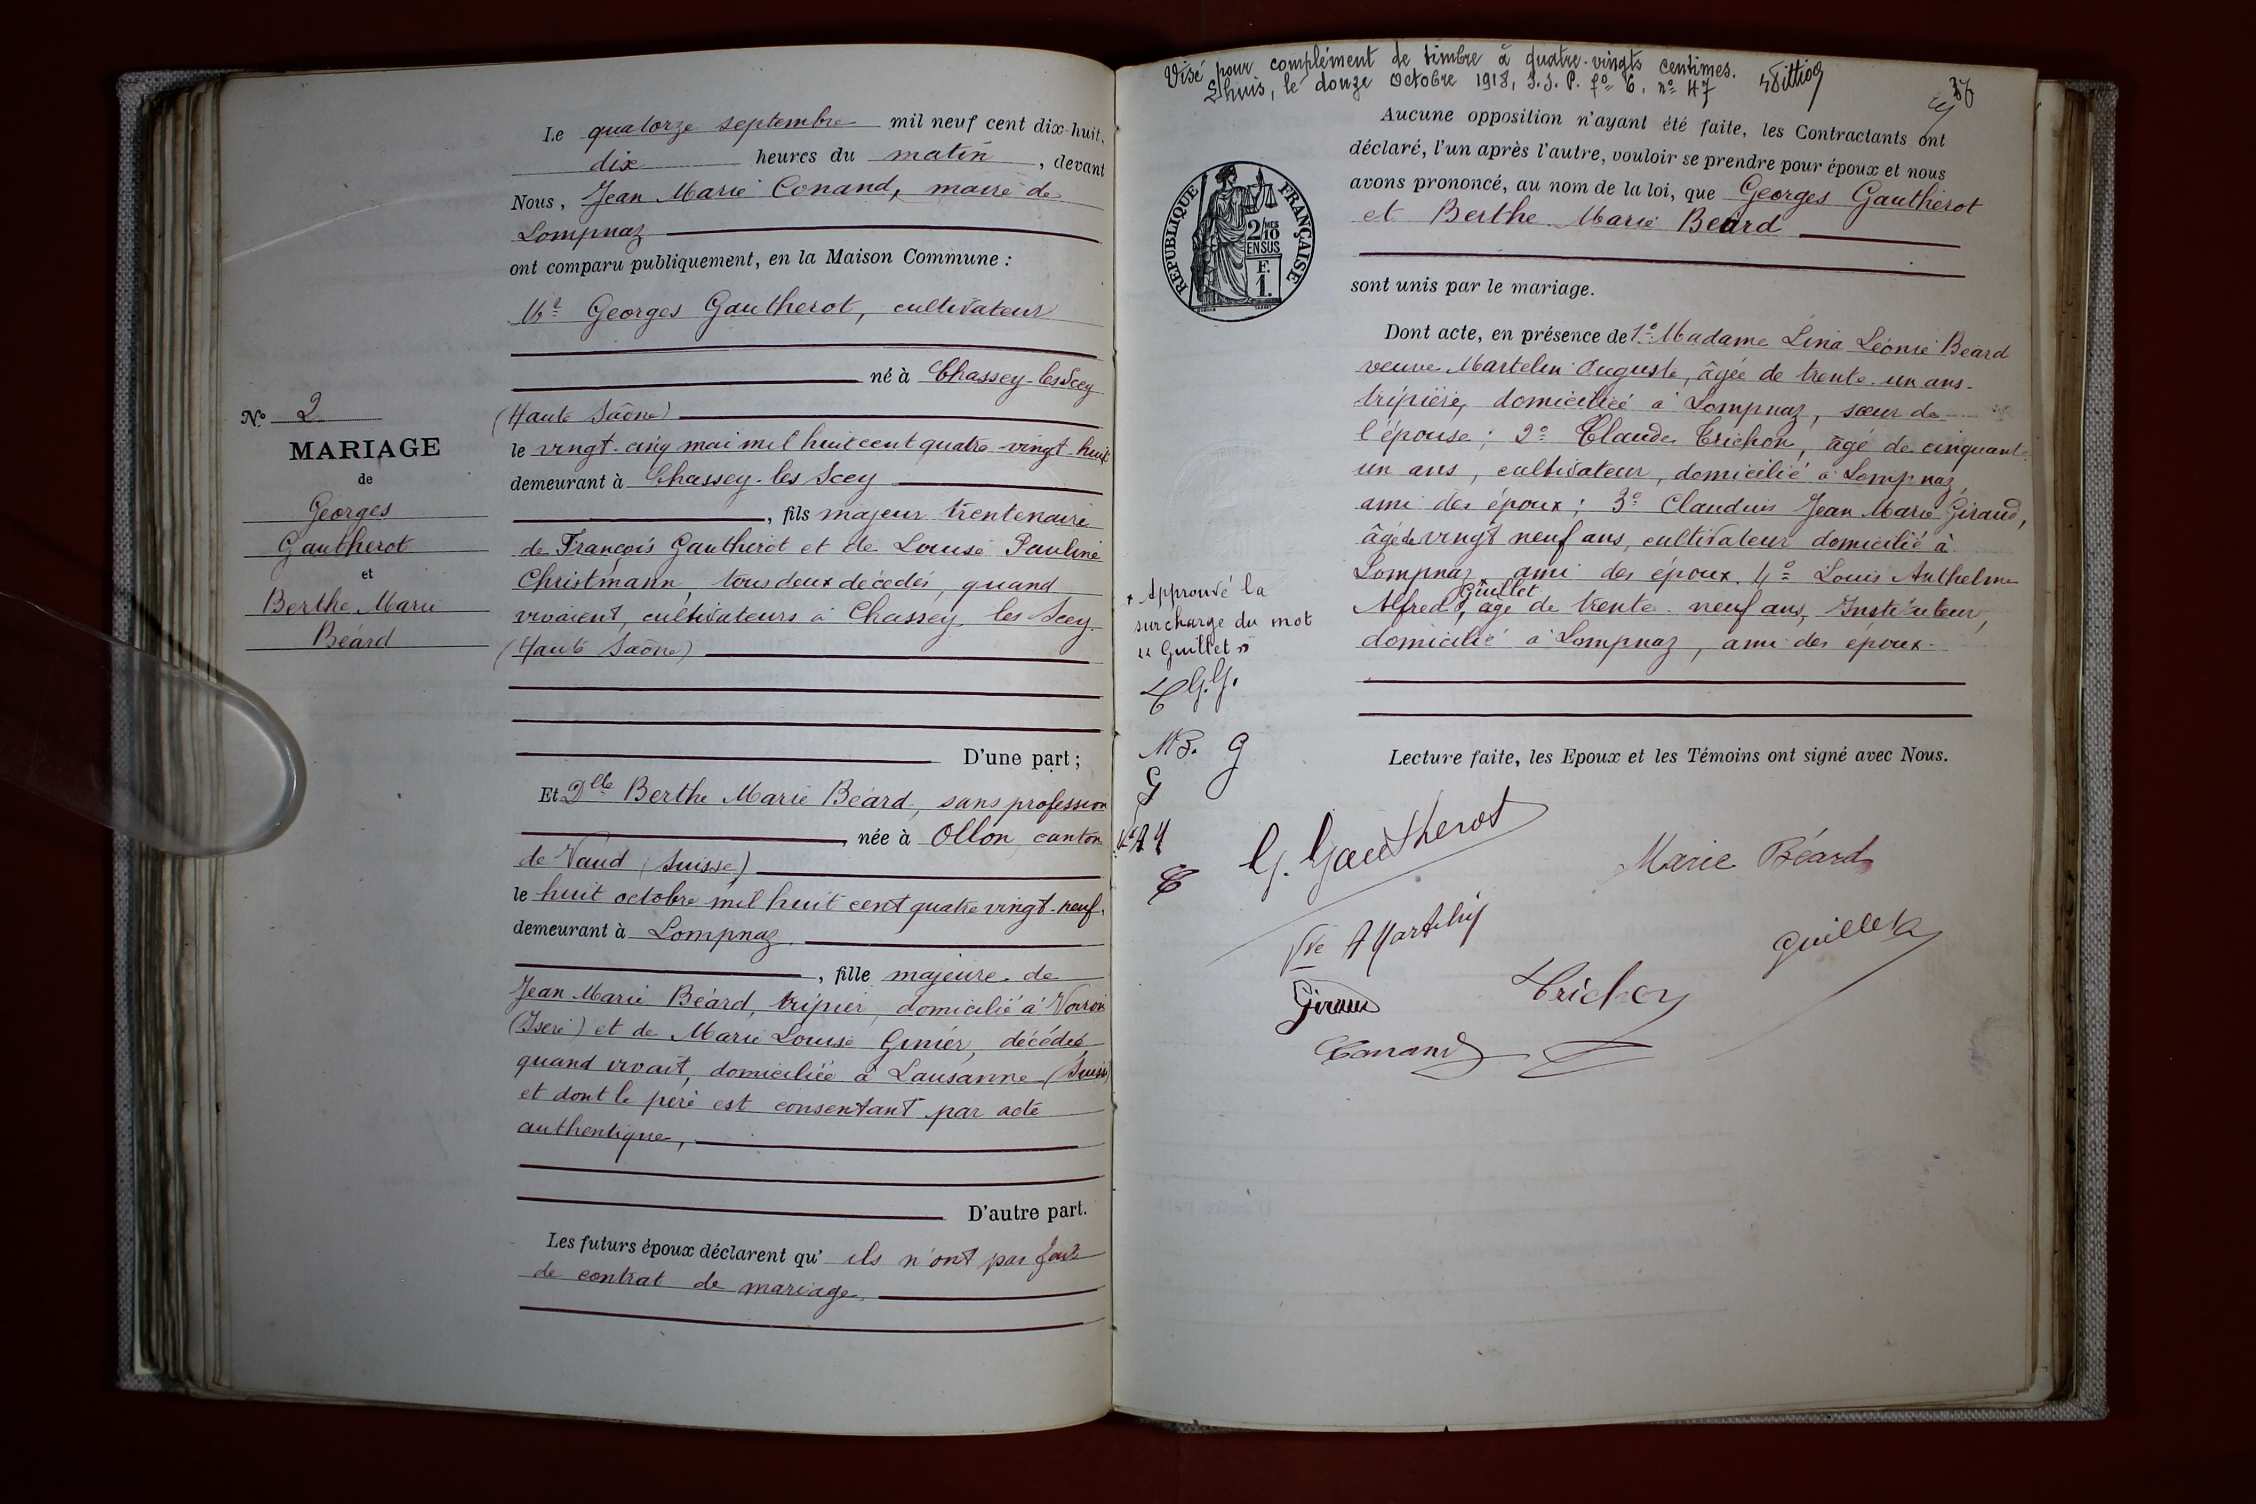 Le quatorze septembre mil neuf cent dix-huit,
dix heures du matin, devant
Nous, Jean Marie Conand, maire de
Lompnaz
ont comparu publiquement, en la Maison Commune :
Mr Georges Gautherot, cultivateur
né à Chassey-les Scey
(Haute Saône)
le vingt-cinq mai mil huit cent quatre-vingt-huit
demeurant à Chassey-les Scey
, fils majeur trentenaire
de François Gautherot et de Louise Pauline
Christmann, tous deux décédés, quand
vivaient, cultivateurs à Chassey les Scey
(Haute Saône)
D'une part ;
Et Dlle Berthe Marie Béard, sans profession
née à Ollon, canton
de Vaud (Suisse)
le huit octobre mil huit cent quatre vingt-neuf,
demeurant à Lompnaz
, fille majeure de
Jean Marie Béard, tripier, domicilié à Voiron
(Isère) et de Marie Louise Ginier, décédée
quand vivait, domiciliée à Lausanne (Suisse)
et dont le père est consentant par acte
authentique,
D'autre part.
Les futurs époux déclarent qu' ils n'ont pas fait
de contrat de mariage
No 2
MARIAGE
de
Georges
Gautherot
et
Berthe Marie
Béard
Visé pour complément de timbre à quatre-vingts centimes.
Lhuis, le douze octobre 1918, S.S.P. fo 6, no 47
36
Aucune opposition n'ayant été faite, les Contractants ont
déclaré, l'un après l'autre, vouloir se prendre pour époux et nous
avons prononcé, au nom de la loi, que Georges Gautherot
et Berthe Marie Beard
sont unis par le mariage.
RÉPUBLIQUE FRANÇAISE
2/MES
10
EN SUS
F.
1.
Dont acte, en présence de 1o Madame Lina Léonie Béard
veuve Martelin Auguste, âgée de trente-un ans-
tripière, domiciliée à Lompnaz, sœur de
l'épouse ; 2o Claude Trichon, âgé de cinquante
un ans, cultivateur, domicilié à Lompnaz,
ami des époux ; 3o Claudius Jean Marie Giraud,
âgé de vingt neuf ans, cultivateur domicilié à
Lompnaz, ami des époux. 4o Louis Anthelme
Alfred Guillet, âgé de trente-neuf ans, Instituteur,
domicilié à Lompnaz, ami des époux.
+ Approuvé la
surcharge du mot
« Guillet »
G.G.
M B. G
G
Ve A M
C
Lecture faite, les Epoux et les Témoins ont signé avec Nous.
G. Gautherot
Marie Béard
Vve A Martelin
Guillet
Giraud
Trichon
Conand